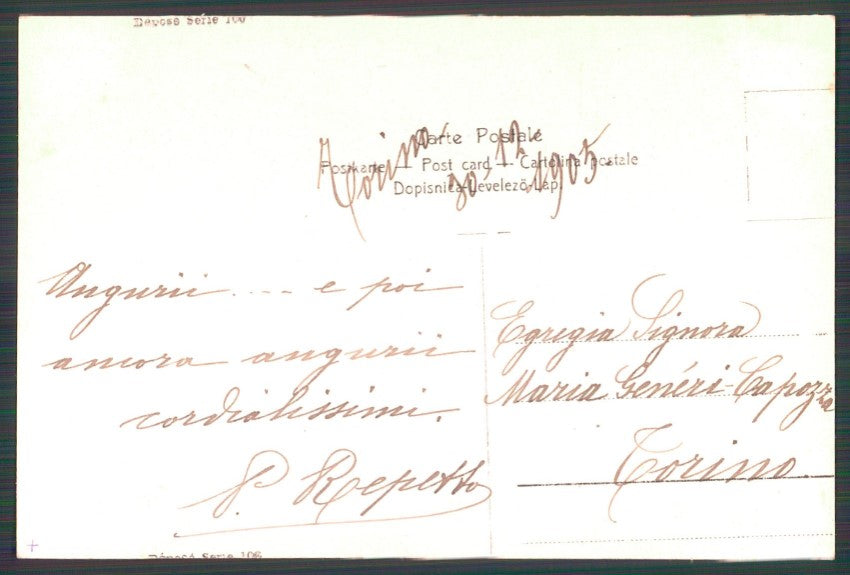 Déposé Serie 106
Carte Postale
Postkarte — Post card — Cartolina postale
Dopisnica-Levelező-Lap
Torino 30.12.1905.
Augurii .... e poi
ancora augurii
cordialissimi.
P. Repetto
Egregia Signora
Maria Genéri-Capozza
Torino
Déposé Serie 106